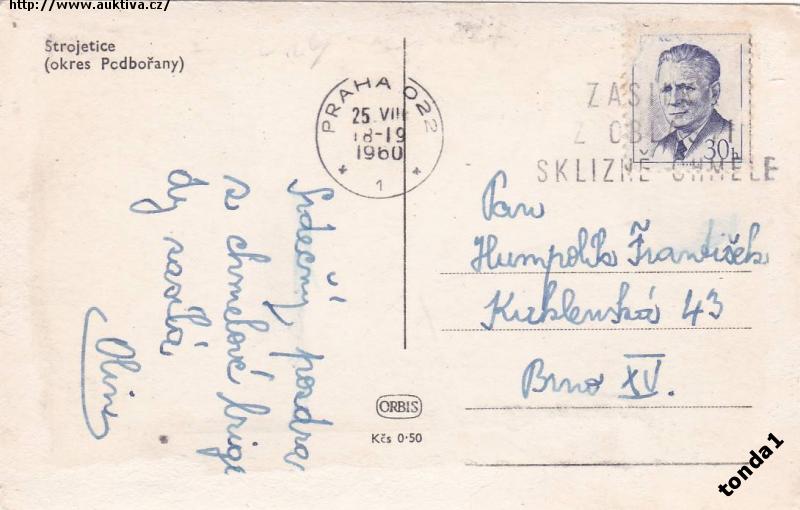 http://www.auktiva.cz/
Strojetice
(okres Podbořany)
PRAHA 022
25. VIII
18-19
1960
1
30h
SKLIZNĚ CHMELE
Srdečný pozdra
s chmelové brigá
dy zasílá
Pan
Humpolík František
Kuklenská 43
Brno XV.
ORBIS
Kčs 0·50
tonda1